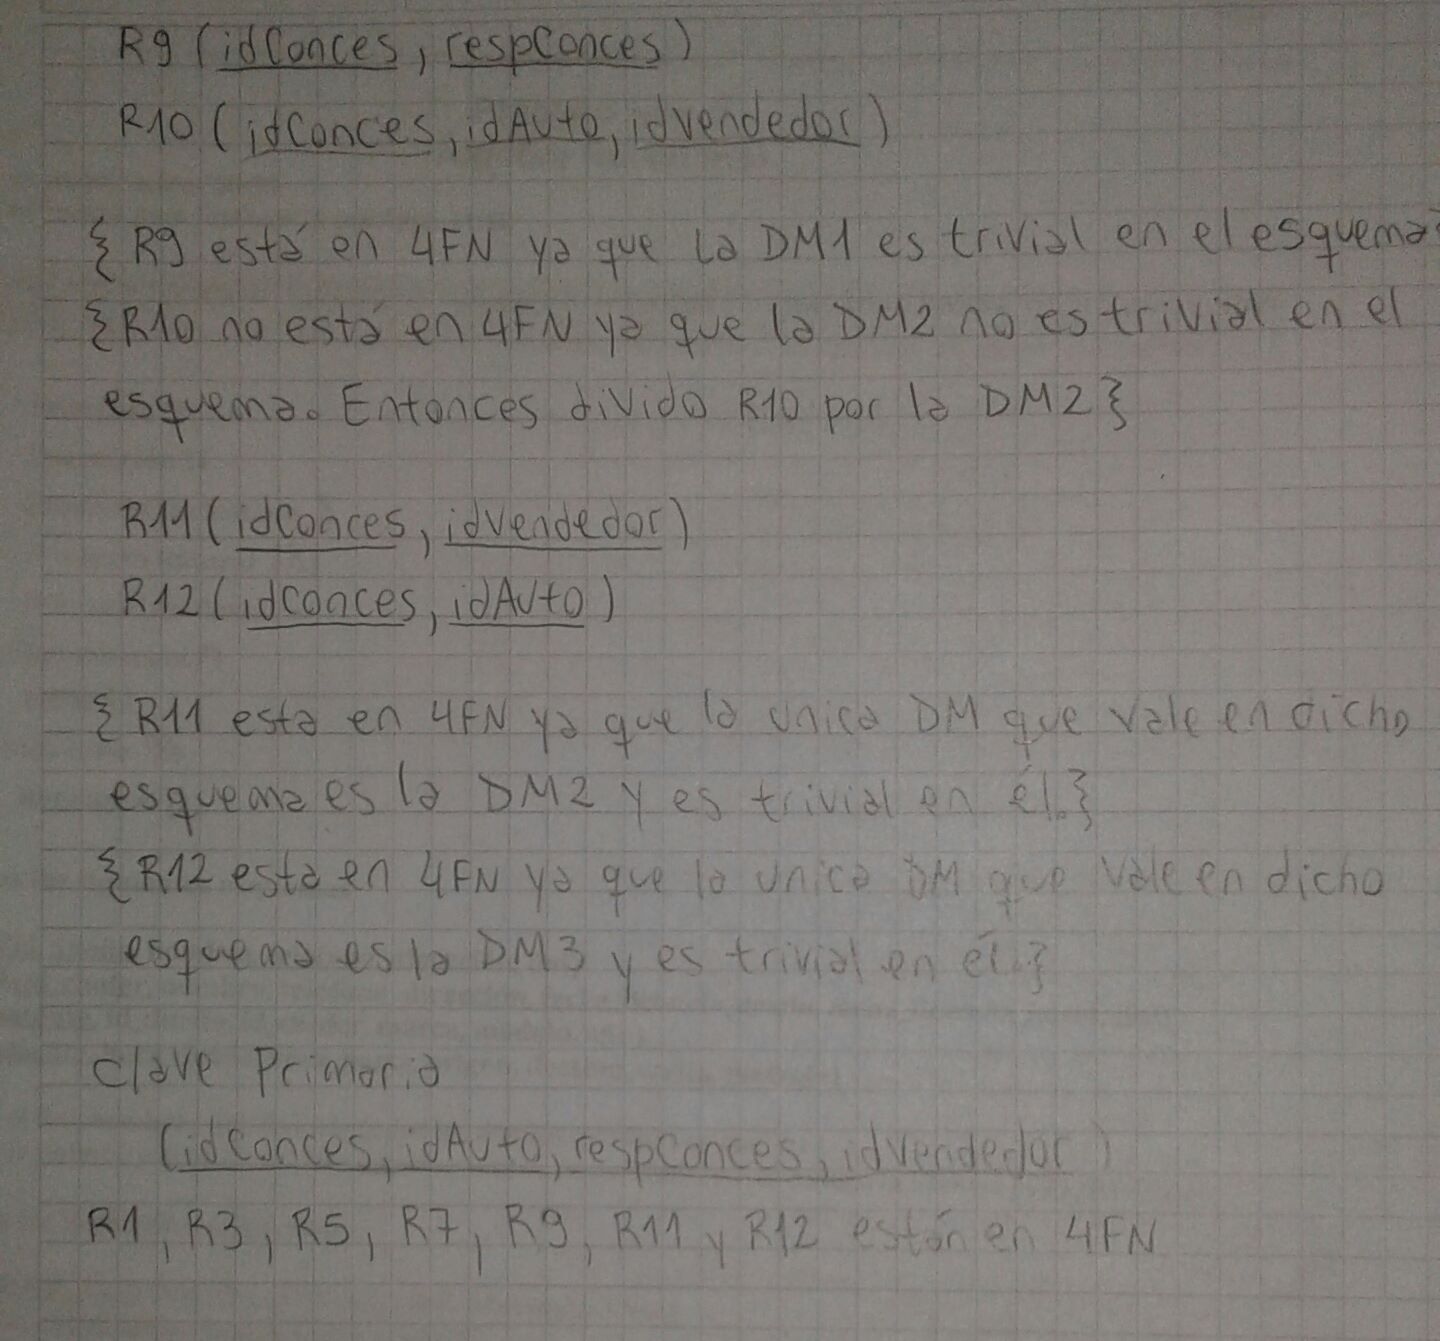 R9 (idConces, respConces)
R10 (idConces, idAuto, idvendedor)
{R9 está en 4FN ya que la DM1 es trivial en el esquema}
{R10 no está en 4FN ya que la DM2 no es trivial en el
esquema. Entonces divido R10 por la DM2}
R11 (idConces, idvendedor)
R12 (idconces, idAuto)
{R11 esta en 4FN ya que la unica DM que vale en dicho
esquema es la DM2 y es trivial en él.}
{R12 esta en 4FN ya que la unica DM que vale en dicho
esquema es la DM3 y es trivial en él.}
Clave Primaria
(idConces, idAuto, respConces, idvendedor)
R1, R3, R5, R7, R9, R11 y R12 están en 4FN